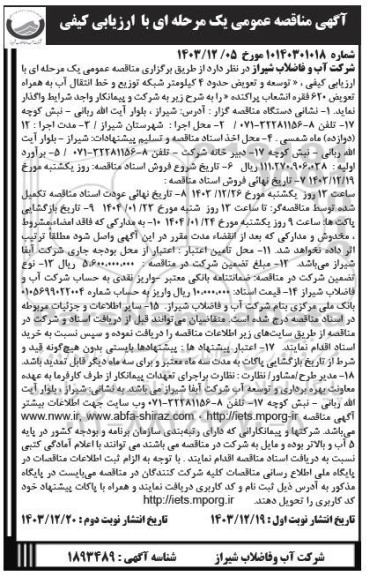 آگهی مناقصه عمومی یک مرحله ای با ارزیابی کیفی
شماره ۱۰۱۴۰۳۰۱۰۱۸ مورخ ۱۴۰۳/۱۲/۰۵
شرکت آب و فاضلاب شیراز در نظر دارد از طریق برگزاری مناقصه عمومی یک مرحله ای با
ارزیابی کیفی , « توسعه و تعویض حدود ۴ کیلومتر شبکه توزیع و خط انتقال آب به همراه
تعویض ۶۲۰ فقره انشعاب پراکنده » را به شرح زیر به شرکت و پیمانکار واجد شرایط واگذار
نماید. ۱- نشانی دستگاه مناقصه گزار : آدرس: شیراز ، بلوار آیت الله ربانی – نبش کوچه
۱۷- تلفن ۸–۳۲۲۸۱۱۵۶-۰۷۱ / ۲- محل اجرا : شهرستان شیراز / ۳- مدت اجرا : ۱۲
(دوازده) ماه شمسی . ۴- محل اخذ اسناد مناقصه و تسلیم پیشنهادات: شیراز – بلوار آیت
الله ربانی – نبش کوچه ۱۷- دبیر خانه شرکت – تلفن ۸–۳۲۲۸۱۱۵۶-۰۷۱ / ۵- برآورد
اولیه: ۱۱۱.۲۷۰.۹۰۶.۰۳۸ ریال ۶- تاریخ شروع فروش اسناد مناقصه: روز یکشنبه مورخ
۱۴۰۳/۱۲/۱۹ ۷- تاریخ نهائی فروش اسناد مناقصه :
ساعت ۱۲ روز یکشنبه مورخ ۱۴۰۳/۱۲/۲۶ ۸- تاریخ نهائی عودت اسناد مناقصه تکمیل
شده توسط مناقصه‌گر: تا ساعت ۱۳ روز شنبه ۱۴۰۴/۰۱/۲۳ ۹- تاریخ بازگشایی
پاکت ها: ساعت ۹ روز یکشنبه مورخ ۱۴۰۴/۰۱/۲۴ ۱۰- به مدارکی که فاقد امضاء،مشروط
، مخدوش و مدارکی که بعد از انقضاء مدت مقرر در این آگهی واصل شود مطلقاً ترتیب
اثر داده نخواهد شد. ۱۱- محل تامین اعتبار : اعتبار از محل بودجه جاری شرکت آبفا
شیراز می‌باشد. ۱۲- مبلغ تضمین شرکت در مناقصه : ۵.۶۰۰.۰۰۰.۰۰۰ ریال ۱۳- نوع
تضمین شرکت در مناقصه: ضمانتنامه بانکی معتبر –واریز نقدی به حساب شرکت آب و
فاضلاب شیراز ۱۴- قیمت اسناد: ۱.۰۰۰.۰۰۰ ریال واریز به حساب شماره ۰۱۰۵۶۹۹۰۲۲۰۰۴
بانک ملی مرکزی بنام شرکت آب و فاضلاب شیراز. ۱۵- سایر اطلاعات و جزئیات مربوطه
در اسناد مناقصه درج شده است. متقاضیان می‌توانند قبل از دریافت اسناد و شرکت در
مناقصه از طریق سایت‌های زیر اطلاعات مناقصه را دریافت نموده و سپس نسبت به خرید
اسناد اقدام نمایند. ۱۷- اعتبار پیشنهاد ها : پیشنهادها بایستی بدون هیچ‌گونه قید و
شرط از تاریخ بازگشایی پاکات به مدت سه ماه معتبر و برای سه ماه دیگر قابل تمدید باشد.
۱۸- مدیر طرح/مشاور/ نظارت : نظارت براجرای تعهدات پیمانکار از طرف کارفرما به عهده
معاونت بهره برداری و توسعه آب شرکت آبفا شیراز می باشد. به نشانی-شیراز، بلوار آیت
الله ربانی – نبش کوچه ۱۷– تلفن ۸–۳۲۲۸۱۱۵۶-۰۷۱ وب سایت جهت اطلاعات بیشتر
آگهی مناقصه http://iets.mporg.ir ، www.abfa-shiraz.com ، www.nww.ir
می‌باشد. شرکتها و پیمانکارانی که دارای رتبه‌بندی سازمان برنامه و بودجه کشور در پایه
۵ آب و بالاتر بوده و مایل به شرکت در مناقصه می باشند می توانند با اعلام آمادگی کتبی
نسبت به دریافت اسناد مناقصه اقدام نمایند . با توجه به الزام ثبت اطلاعات مناقصات در
پایگاه ملی اطلاع رسانی مناقصات کلیه شرکت کنندگان در مناقصه می‌بایست در پایگاه
مذکور به آدرس ذیل ثبت نام و کد کاربری دریافت نمایند و همراه با پاکات پیشنهاد خود
کد کاربری را تحویل دهند. http://iets.mporg.ir
تاریخ انتشار نوبت اول : ۱۴۰۳/۱۲/۱۹ تاریخ انتشار نوبت دوم : ۱۴۰۳/۱۲/۲۰
شرکت آب وفاضلاب شیراز شناسه آگهی : ۱۸۹۳۴۸۹